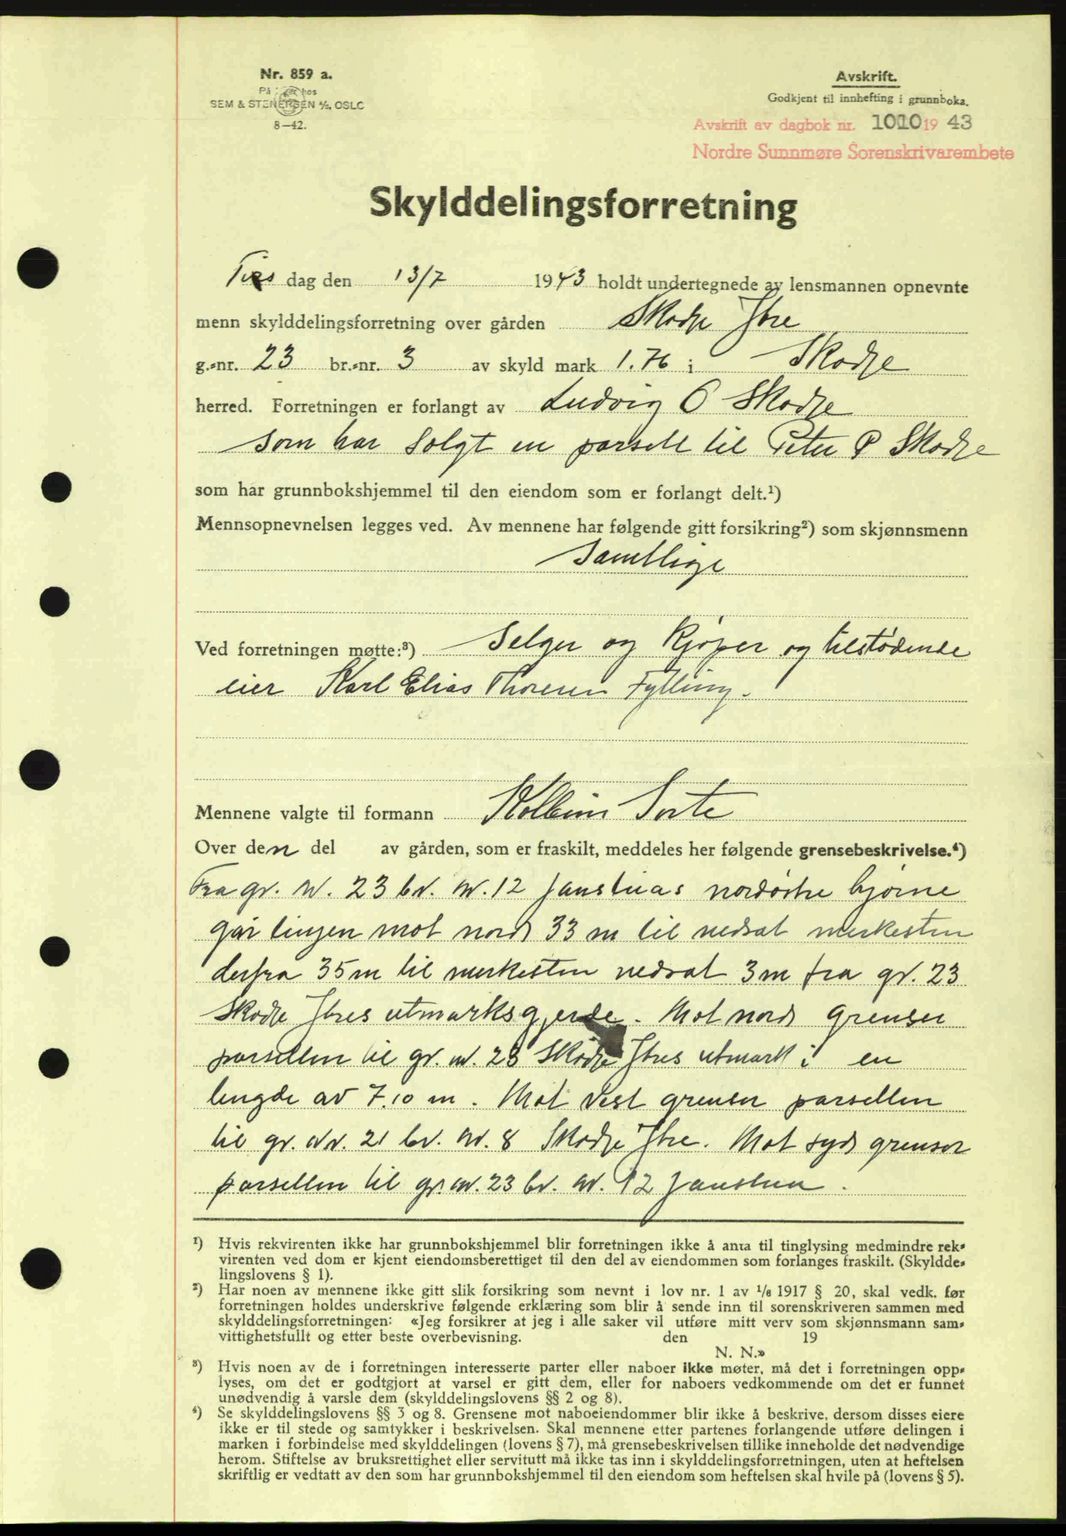 Nr. 859 a.
På lager hos
SEM & STENERSEN A/S, OSLO
8—42.
Avskrift.
Godkjent til innhefting i grunnboka.
Avskrift av dagbok nr. 1010 19 43
Nordre Sunnmøre Sorenskrivarembete
Skylddelingsforretning
Tirs dag den 13/7 1943 holdt undertegnede av lensmannen opnevnte
menn skylddelingsforretning over gården Skodje Ytre
g.-nr. 23 br.-nr. 3 av skyld mark 1.76 i Skodje
herred. Forretningen er forlangt av Ludvig O Skodje
som har solgt en parsell til Peter P Skodje
som har grunnbokshjemmel til den eiendom som er forlangt delt.¹)
Mennsopnevnelsen legges ved. Av mennene har følgende gitt forsikring²) som skjønnsmenn
Samtlige
Ved forretningen møtte:³) Selger og kjøper og tilstødende
eier Karl Elias Thoresen Fylling.
Mennene valgte til formann Kolbein Sorte
Over den del av gården, som er fraskilt, meddeles her følgende grensebeskrivelse.⁴)
Fra gr. nr. 23 br. nr. 12 Janstuas nordøstre hjørne
går linjen mot nord 33 m til nedsat merkesten
derfra 35 m til merkesten nedsat 3 m fra gr. 23
Skodje Ytres utmarksgjerde. Mot nord grenser
parsellen til gr. nr. 23 Skodje Ytres utmark i en
lengde av 7.10 m. Mot vest grenser parsellen
til gr. nr. 21 br. nr. 8 Skodje Ytre. Mot syd grenser
parsellen til gr. nr. 23 br. nr. 12 Janstua.
¹) Hvis rekvirenten ikke har grunnbokshjemmel blir forretningen ikke å anta til tinglysing medmindre rek-
virenten ved dom er kjent eiendomsberettiget til den del av eiendommen som forlanges fraskilt. (Skyldde-
lingslovens § 1).
²) Har noen av mennene ikke gitt slik forsikring som nevnt i lov nr. 1 av 1/6 1917 § 20, skal vedk. før
forretningen holdes underskrive følgende erklæring som blir å sende inn til sorenskriveren sammen med
skylddelingsforretningen: «Jeg forsikrer at jeg i alle saker vil utføre mitt verv som skjønnsmann sam-
vittighetsfullt og etter beste overbevisning. den 19
N. N.»
³) Hvis noen av de i forretningen interesserte parter eller naboer ikke møter, må det i forretningen opp-
lyses, om det er godtgjort at varsel er gitt dem, eller for naboers vedkommende om det er funnet
unødvendig å varsle dem (skylddelingslovens §§ 2 og 8).
⁴) Se skylddelingslovens §§ 3 og 8. Grensene mot naboeiendommer blir ikke å beskrive, dersom disses eiere
ikke er til stede og samtykker i beskrivelsen. Skal mennene etter partenes forlangende utføre delingen i
marken i forbindelse med skylddelingen (lovens § 7), må grensebeskrivelsen tillike inneholde det nødvendige
herom. Stiftelse av bruksrettighet eller servitutt må ikke tas inn i skylddelingsforretningen, uten at heftelsen
skriftlig er vedtatt av den som har grunnbokshjemmel til den eiendom som heftelsen skal hvile på (lovens § 5).